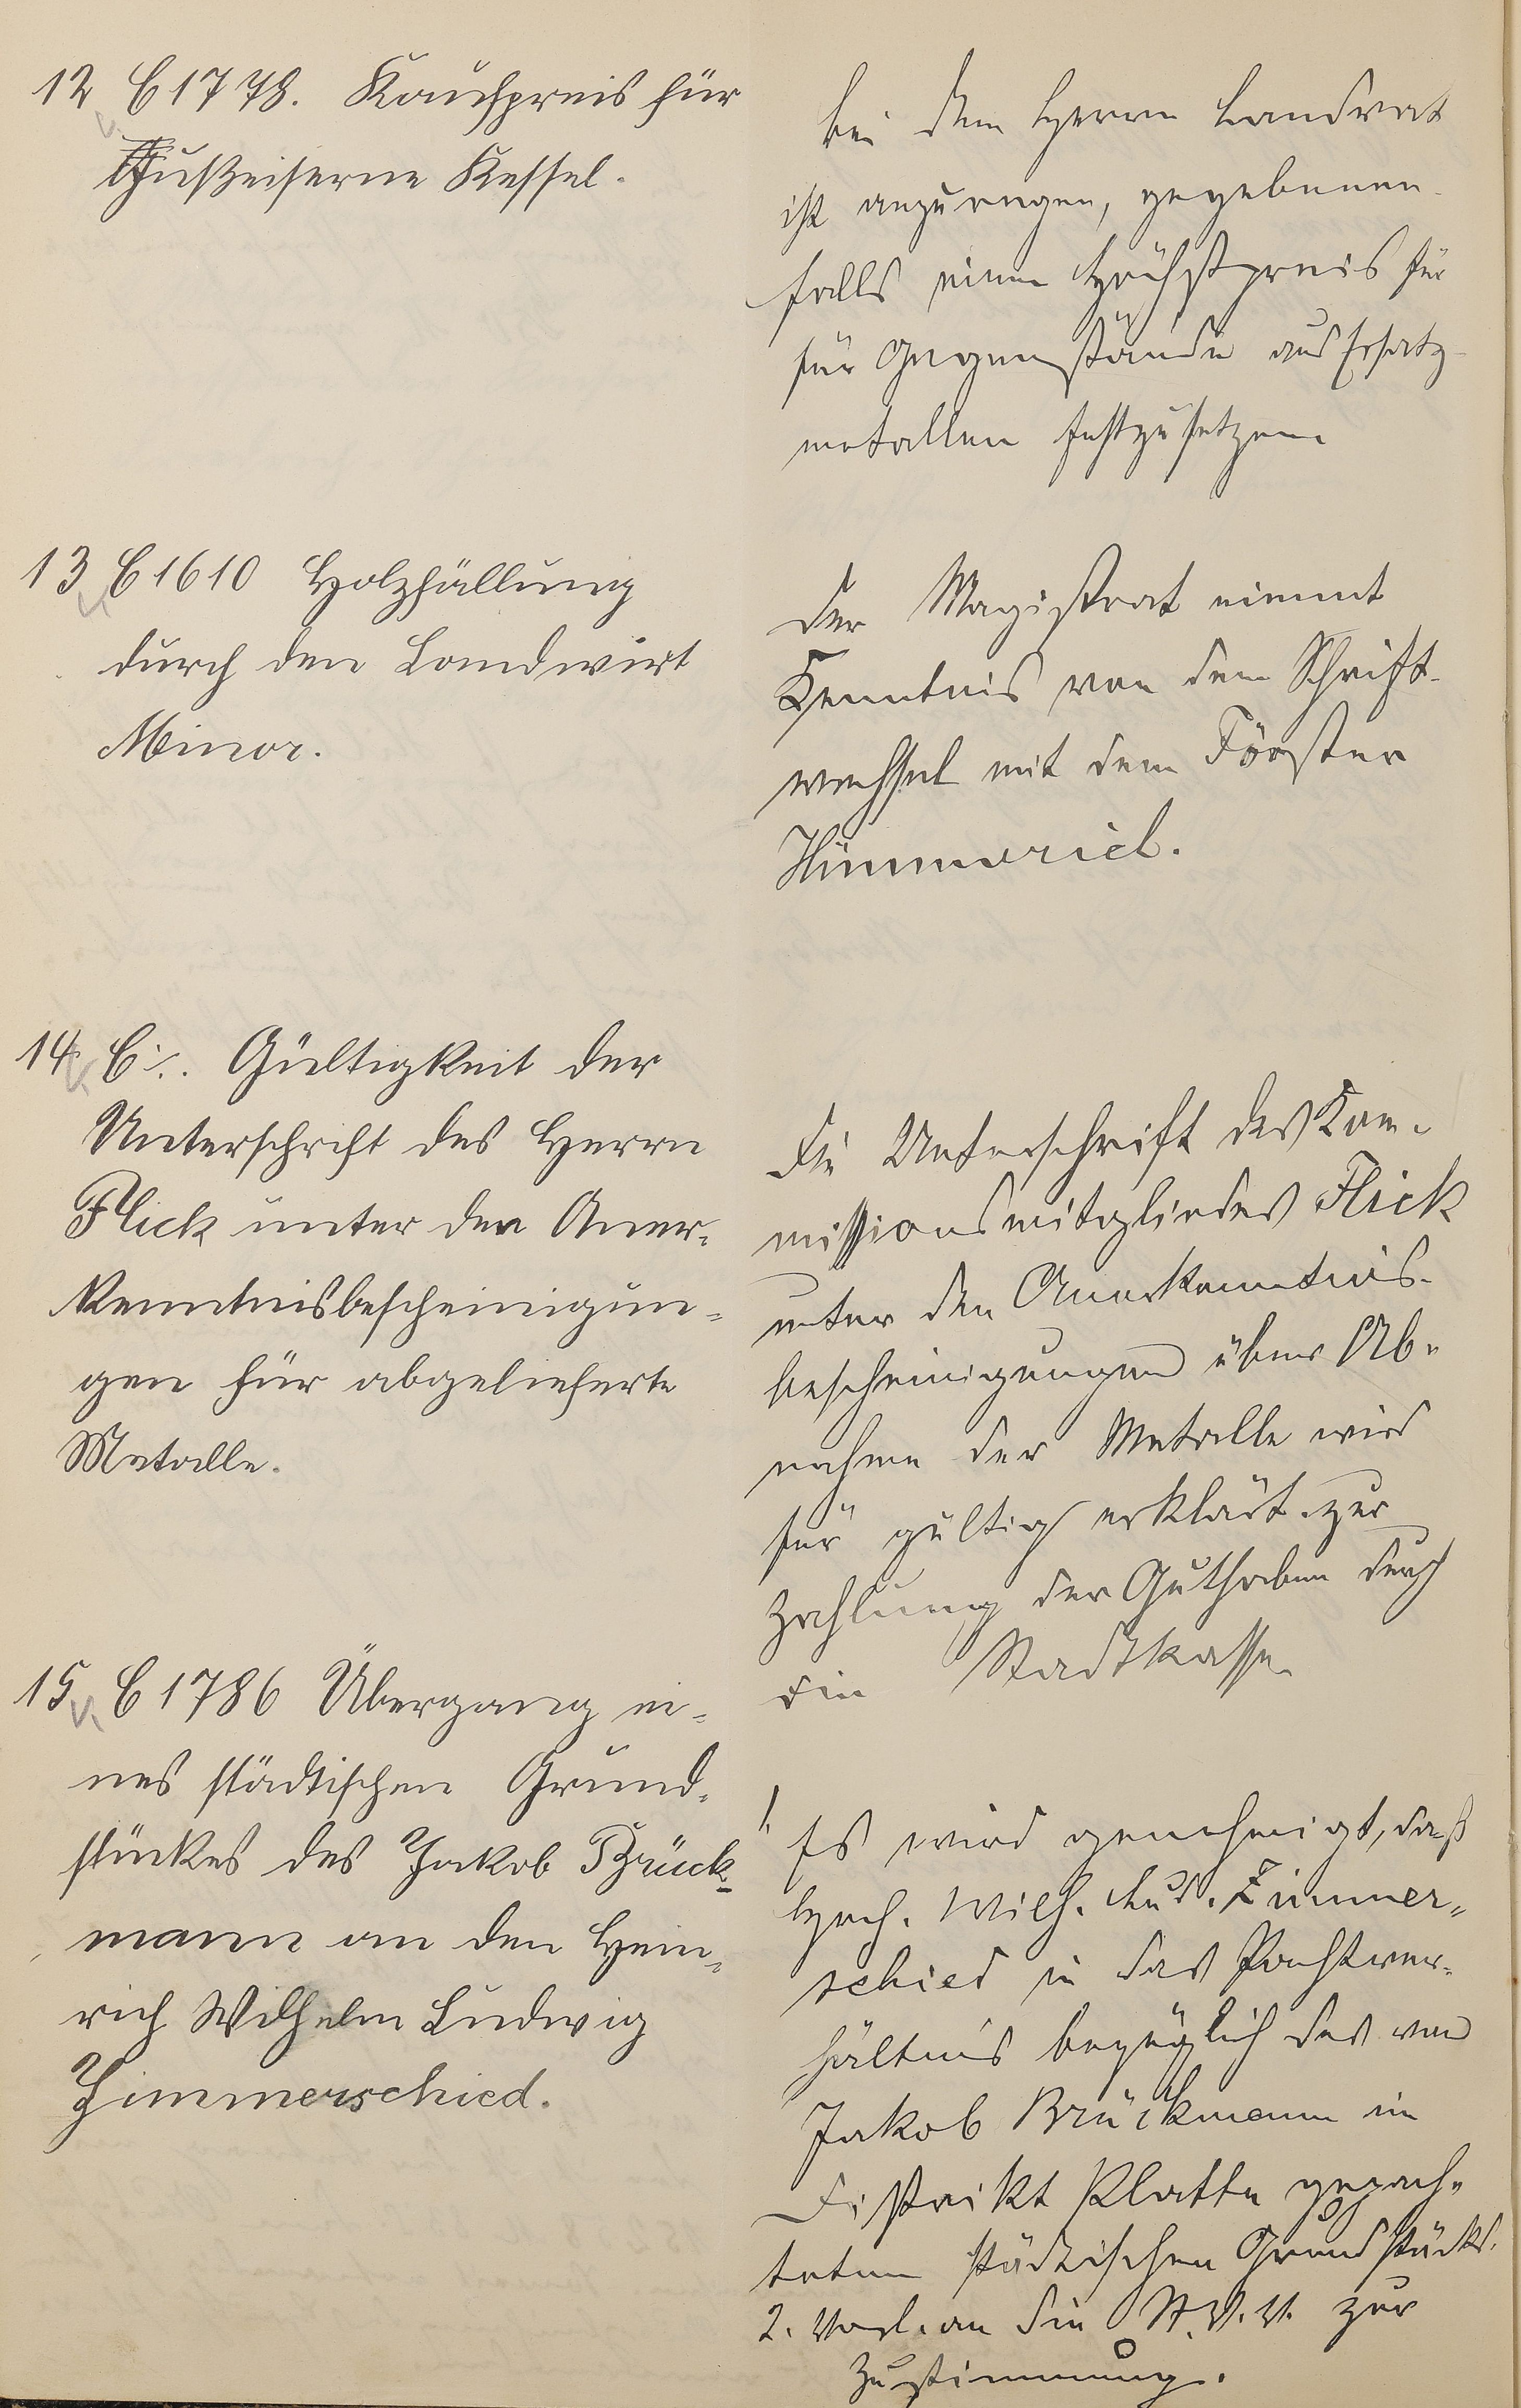 12 C 1778. Kaufpreis für
Gußeiserne Kessel.
bei dem Herrn Landrat
ist anzuregen, gegebenen-
falls einen Höchstpreis für
für Gegenstände aus Ersatz-
metallen festzusetzen
13 C 1610 Holzfällung
durch den Landwirt
Minor.
Der Magistrat nimmt
Kenntnis von dem Schrift-
wechsel mit dem Förster
Himmerich.
14 C ./. Gültigkeit der
Unterschrift des Herrn
Flick unter den Aner-
kenntnisbescheinigun-
gen für abgelieferte
Metalle.
Die Unterschrift des Kom-
missionsmitgliedes Flick
unter den Anerkenntnis-
bescheinigungen über Ab-
nahme der Metalle wird
für gültig erklärt zur
Zahlung der Guthaben durch
die Stadtkasse
15 C 1786 Übergang ei-
nes städtischen Grund-
stückes des Jakob Brück-
mann an den Hein-
rich Wilhelm Ludwig
Zimmerschied.
1. Es wird genehmigt, daß
Hch. Wilh. Lud. Zimmer-
schied in das Pachtver-
hältnis bezüglich des von
Jakob Brückmann im
Distrikt Platte gepach-
teten städtischen Grundstücks.
2. Vorl. an die St. V. V. zur
Zustimmung.